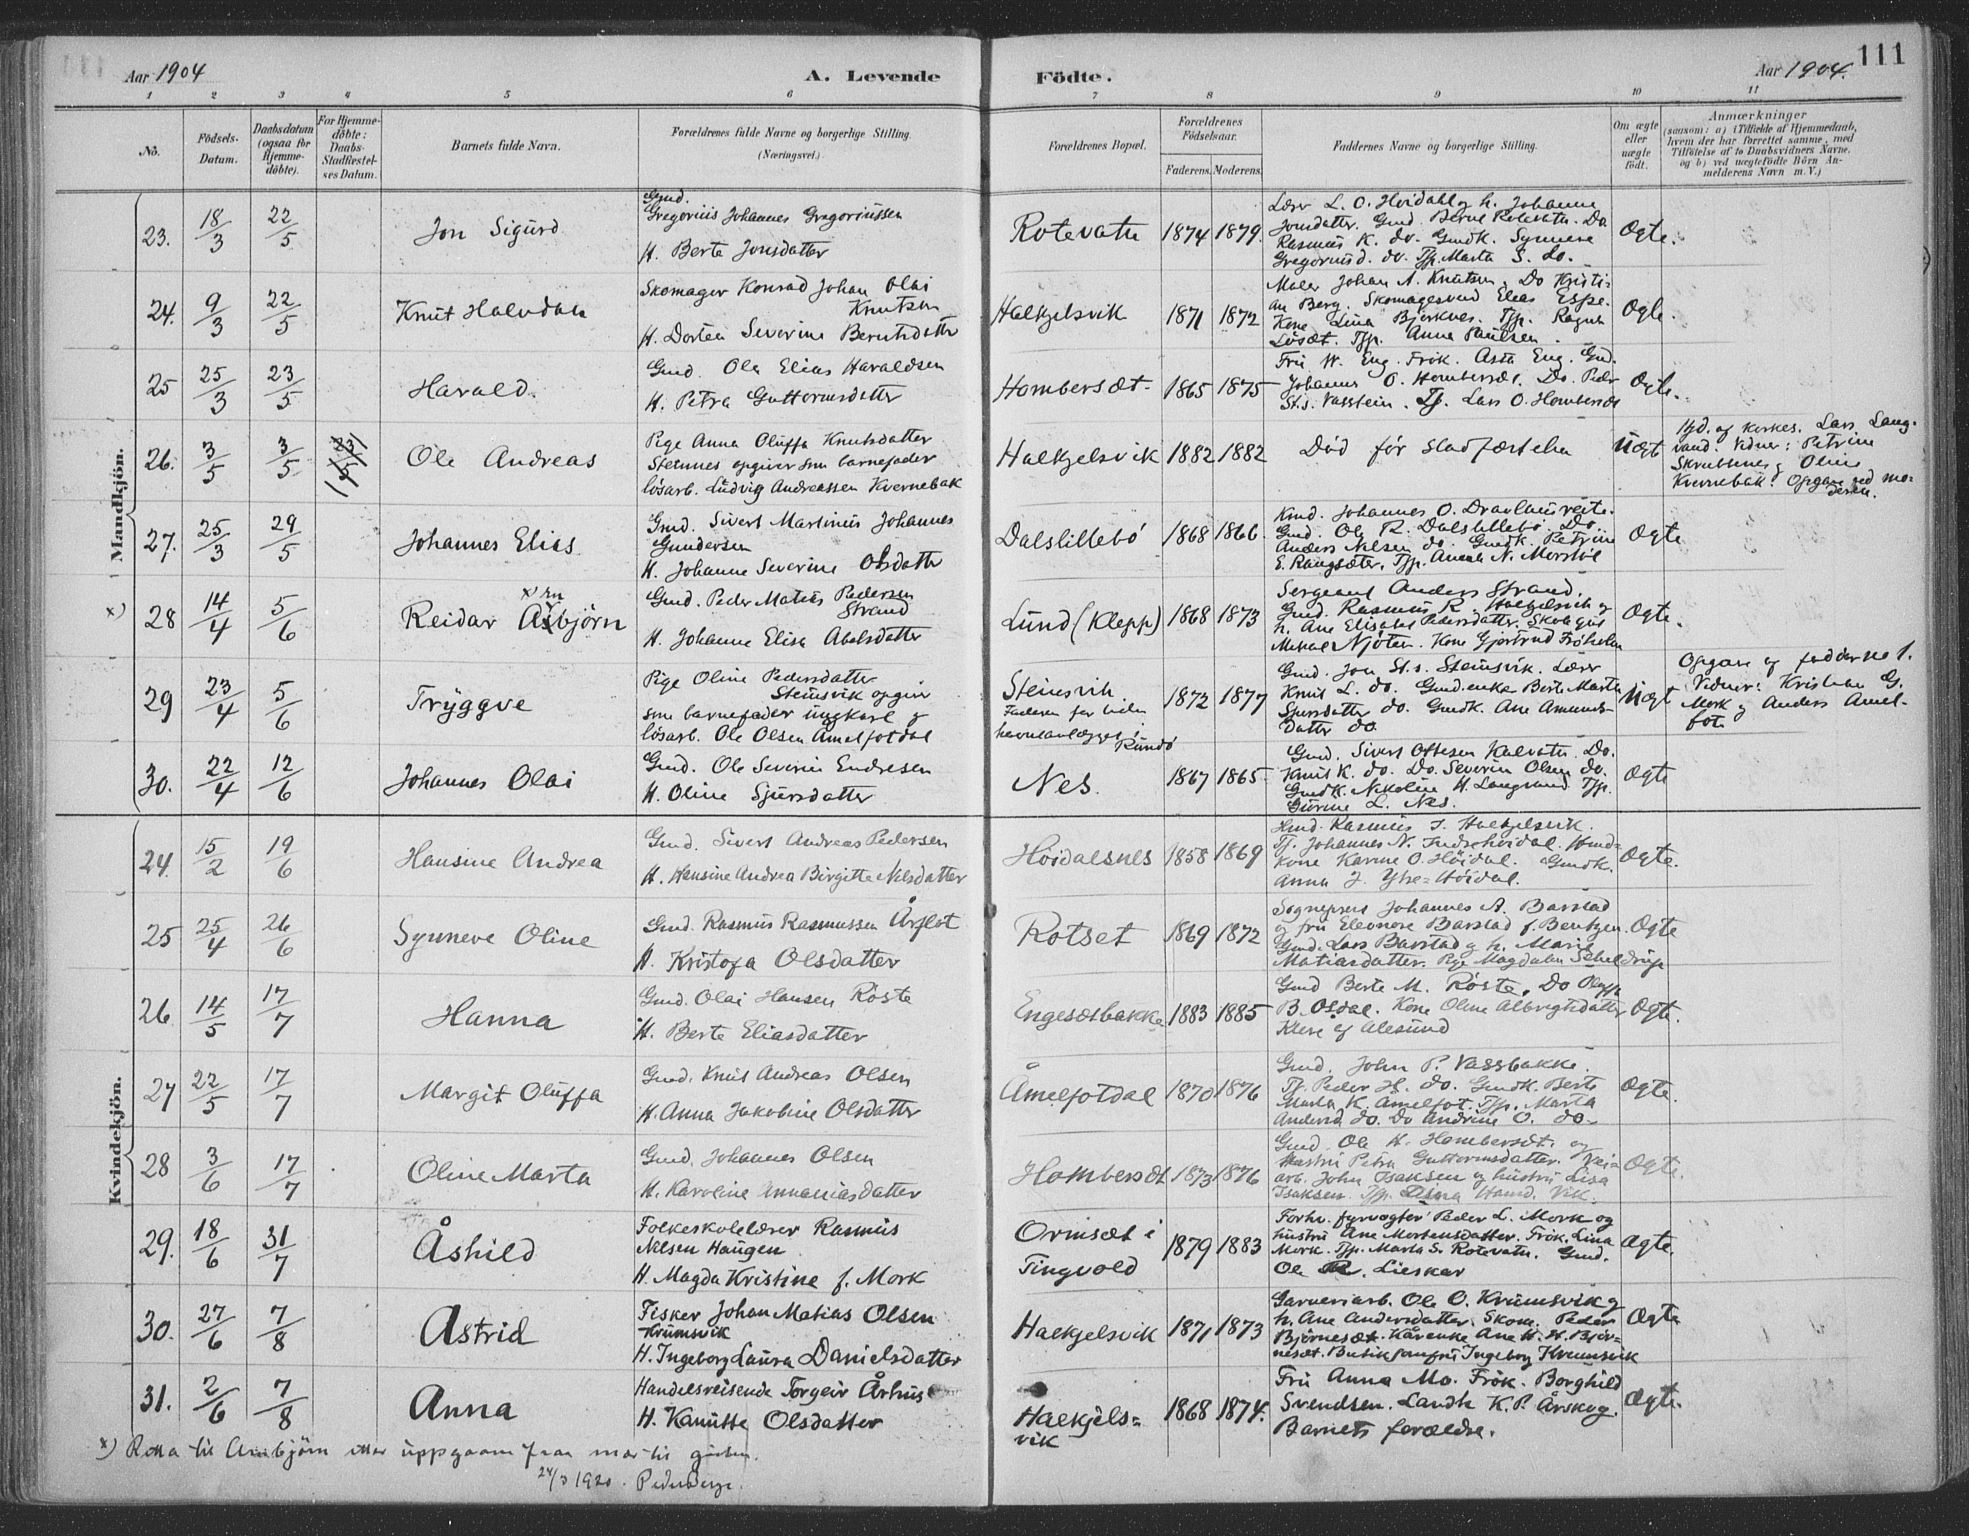 111
Aar 1904
A. Levende
Födte.
Aar 1904.
1 2 3 4 5 6 7 8 9 10 11
No.
Födsels-
Datum.
Daabsdatum
(ogsaa for
Hjemme-
döbte).
For Hjemme-
döbte:
Daabs-
Stadfæstel-
ses Datum.
Barnets fulde Navn.
Forældrenes fulde Navne og borgerlige Stilling.
(Næringsvei.)
Forældrenes Bopæl.
Forældrenes
Födselsaar.
Faderens. Moderens.
Faddernes Navne og borgerlige Stilling.
Om ægte
eller
uægte
födt.
Anmærkninger
(saasom: a) i Tilfælde af Hjemmedaab,
hvem der har forrettet samme, med
Tilföielse af to Daabsvidners Navne,
og b) ved uægtefödte Börn An-
melderens Navn m. V.)
Mandkjön.
23. 18/3 22/5 Jon Sigurd
Gmd.
Gregorius Johannes Gregoriussen
H. Berte Jonsdatter
Rotevatn 1874 1879.
Lærer L. O. Hoidahl og h. Johanne
Jonsdatter. Gmd. Bernt Rotevatn. Do.
Rasmus K. do. Gmdk. Synneve
Gregoriusd. do. Tjp. Marta S. do.
Ægte.
24. 9/3 22/5 Knut Halvdan
Skomager Konrad Johan Olai
Knutsen
H. Dortea Severine Berntsdatter
Halkjelsvik 1871 1872
Maler Johan A. Knutsen. Do Kristi-
an Berg. Skomagersvend Elias Espe.
Kone Lina Bjørknes. Tjp. Ragna
Løsæt. Tjp. Anna Paulsen.
Ægte.
25 25/3 23/5 Harald.
Gmd. Ole Elias Haraldsen
H. Petra Guttormsdatter
Hombersæt 1865 1875
Fru W. Eng. Frøk. Asta Eng. Gmd.
Johannes O. Hombersæt. Do. Peder
St.s. Vasstein. Tj. Lars O. Hombersæt
Ægte.
26. 3/5 3/5 (23/5) Ole Andreas
Pige Anna Oluffa Knutsdatter
Steinnes opgiver som barnefader
løsarb. Ludvig Andreassen Kvernebak
Halkjelsvik 1882 1882
Død før stadfæstelsen
Uægt
Hjd. af kirkes. Lars Lang-
vand. Vidner: Petrine
Skrubbenes og Oline
Kvernebak. Opgave ved mo-
deren.
27. 25/3 29/5 Johannes Elias
Gmd. Sivert Martinus Johannes
Gundersen
H. Johanne Severine Olsdatter
Dalslillebö 1868 1866.
Kmd. Johannes O. Dravlausreite.
Gmd. Ole R. Dalslillebö. Do.
Anders Nilsen do. Gmdk. Petrine
E. Rangsæter. Tjp. Anna N. Morstöl
Ægte
x) 28 14/4 5/6 Reidar Asbjörn
x rn
Gmd. Peder Matias Pedersen
Strand
H. Johanne Elisa Abelsdatter
Lund (Klepp) 1868 1873
Sergeant Anders Strand.
Gmd. Rasmus R. Halkjelsvik og
h. Ane Elisabet Pedersdatter. Skolegut
Mikael Njøten. Kone Gjertrud Frøholm
Ægte.
29 23/4 5/6 Tryggve
Pige Oline Pedersdatter
Steinsvik opgiver
som barnefader ungkarl og
løsarb. Ole Olsen Åmelfotdal
Steinsvik.
Faderen for tiden
havneanlægget i
Rundö
1872 1877
Gmd. Jon St.s. Steinsvik. Lærer
Knut L. do. Gmd.enke Berte Marte
Sjursdatter do. Gmdk. Ane Amunds-
datter do.
Uægt
Opgave og fadder no 1.
Vidner: Kristian G.
Mork og Anders Åmel-
fot.
30. 22/4 12/6 Johannes Olai
Gmd. Ole Severin Endresen
H. Oline Sjursdatter
Nes. 1867 1865
Gmd. Sivert Ottesen Kalvatn. Do.
Knut K. do. Do. Severin Olsen do.
Gmdk. Nikoline H. Langvand. Tjp.
Gurine L. Nes.
Ægte
Kvindekjön.
24. 15/2 19/6 Hansine Andrea
Gmd. Sivert Andreas Pedersen
H. Hansine Andrea Birgitte Nilsdatter
Höidalsnes 1858 1869
Hmd. Rasmus J. Halkjelsvik.
Tj. Johannes N. Indrehöidal. Hmd-
kone Karine O. Höidal. Gmdk.
Anna J. Ytre-Höidal.
Ægte.
25 25/4 26/6 Synneve Oline
Gmd. Rasmus Rasmussen Årflot
H. Kristofa Olsdatter
Rotset 1869 1872
Sogneprest Johannes A. Barstad
og fru Eleonore Barstad f. Bentzen.
Gmd. Lars Barstad og h. Marie
Matiasdatter. Pige Magdalen Scheldrup
Ægte
26 14/5 17/7 Hanna
Gmd. Olai Hansen Röste
H. Berte Eliasdatter
Engesætbakke 1883 1885
Gmd Berte M. Röste. Do Oluffa
B. Osdal. Kone Oline Albrigtsdatter
Klere af Alesund
Ægte.
27 22/5 17/7 Margit Oluffa
Gmd. Knut Andreas Olsen
H. Anna Jakobine Olsdatter
Åmelfotdal 1870 1876
Gmd. John P. Vassbakke.
Tj. Peder H. do. Gmdk. Berte
Marta K. Åmelfot. Tjp. Marta
Andersd. do. Do Andrine O. do.
Ægte.
28 3/6 17/7 Oline Marta
Gmd. Johannes Olsen
H. Karoline Annaniasdatter
Hombersæt 1873 1876
Gmd. Ole H. Hombersæt. og
Hustru Petra Guttormsdatter. Vei-
arb. John Isaksen og hustru Lisa
Isaksen. Tjp. Hamd. Vik.
Ægte.
29. 18/6 31/7 Åshild
Folkeskolelærer Rasmus
Nilsen Haugen.
H. Magda Kristine f. Mork
Ormsæt i
Tingvold
1879 1883
Forhv. fyrvogter Peder L. Mork og
hustru Ane Mortensdatter. Frøk. Lina
Mork. Tjp. Marta S. Rotevatn. Gmd.
Ole R. Lieskar
Ægte.
30. 27/6 7/8 Astrid
Fisker Johan Matias Olsen
Krumsvik
H. Ingeborg Laura Danielsdatter
Halkjelsvik 1871 1873
Garveriarb. Ole O. Krumsvik og
h. Ane Andersdatter. Skom. Peder
Björnesæt. Kårenke Ane H. H. Björ-
nesæt. Butikjomfru Ingeborg Krumsvik
Ægte
31. 2/6 7/8 Anna
Handelsreisende Torgeir Århus
H. Kanutte Olsdatter
Halkjels-
vik
1868 1874.
Fru Anna Mo. Frøk. Borghild
Svendsen. Landh. K. P. Årskog.
Barnets forældre.
Ægte.
x) Retta til Arnbjörn etter uppgaave fraa mor til guten.
24/3 1920. Peder Berge.